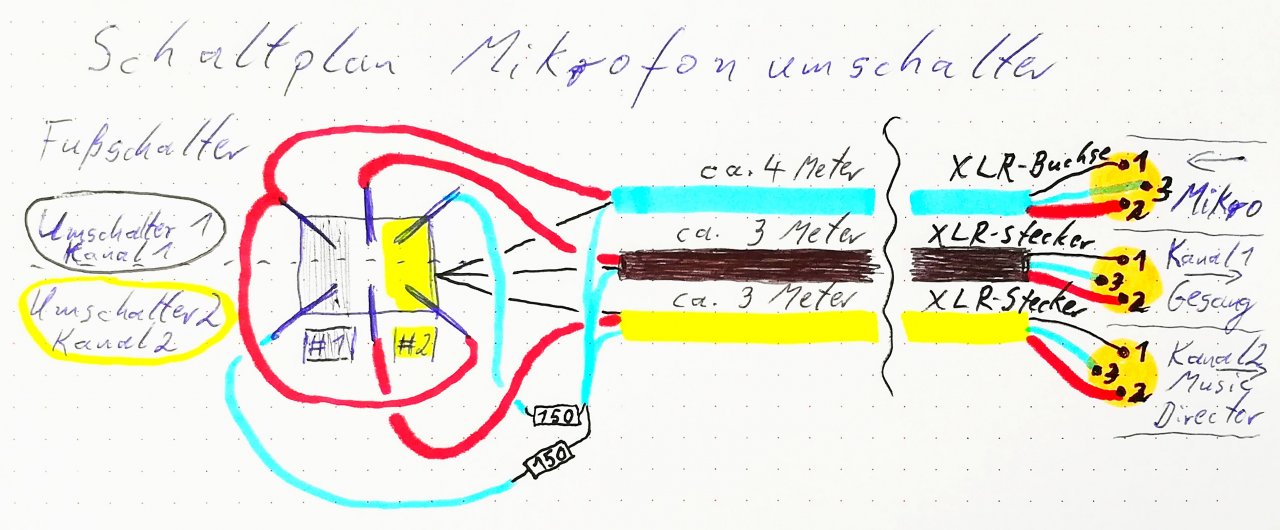 Schaltplan Mikrofonumschalter
Fußschalter
Umschalter 1
Kanal 1
Umschalter 2
Kanal 2
#1
#2
150
150
ca. 4 Meter
ca. 3 Meter
ca. 3 Meter
XLR-Buchse
1
3
2
Mikro
XLR-Stecker
1
3
2
Kanal 1
Gesang
XLR-Stecker
1
3
2
Kanal 2
Music
Directer